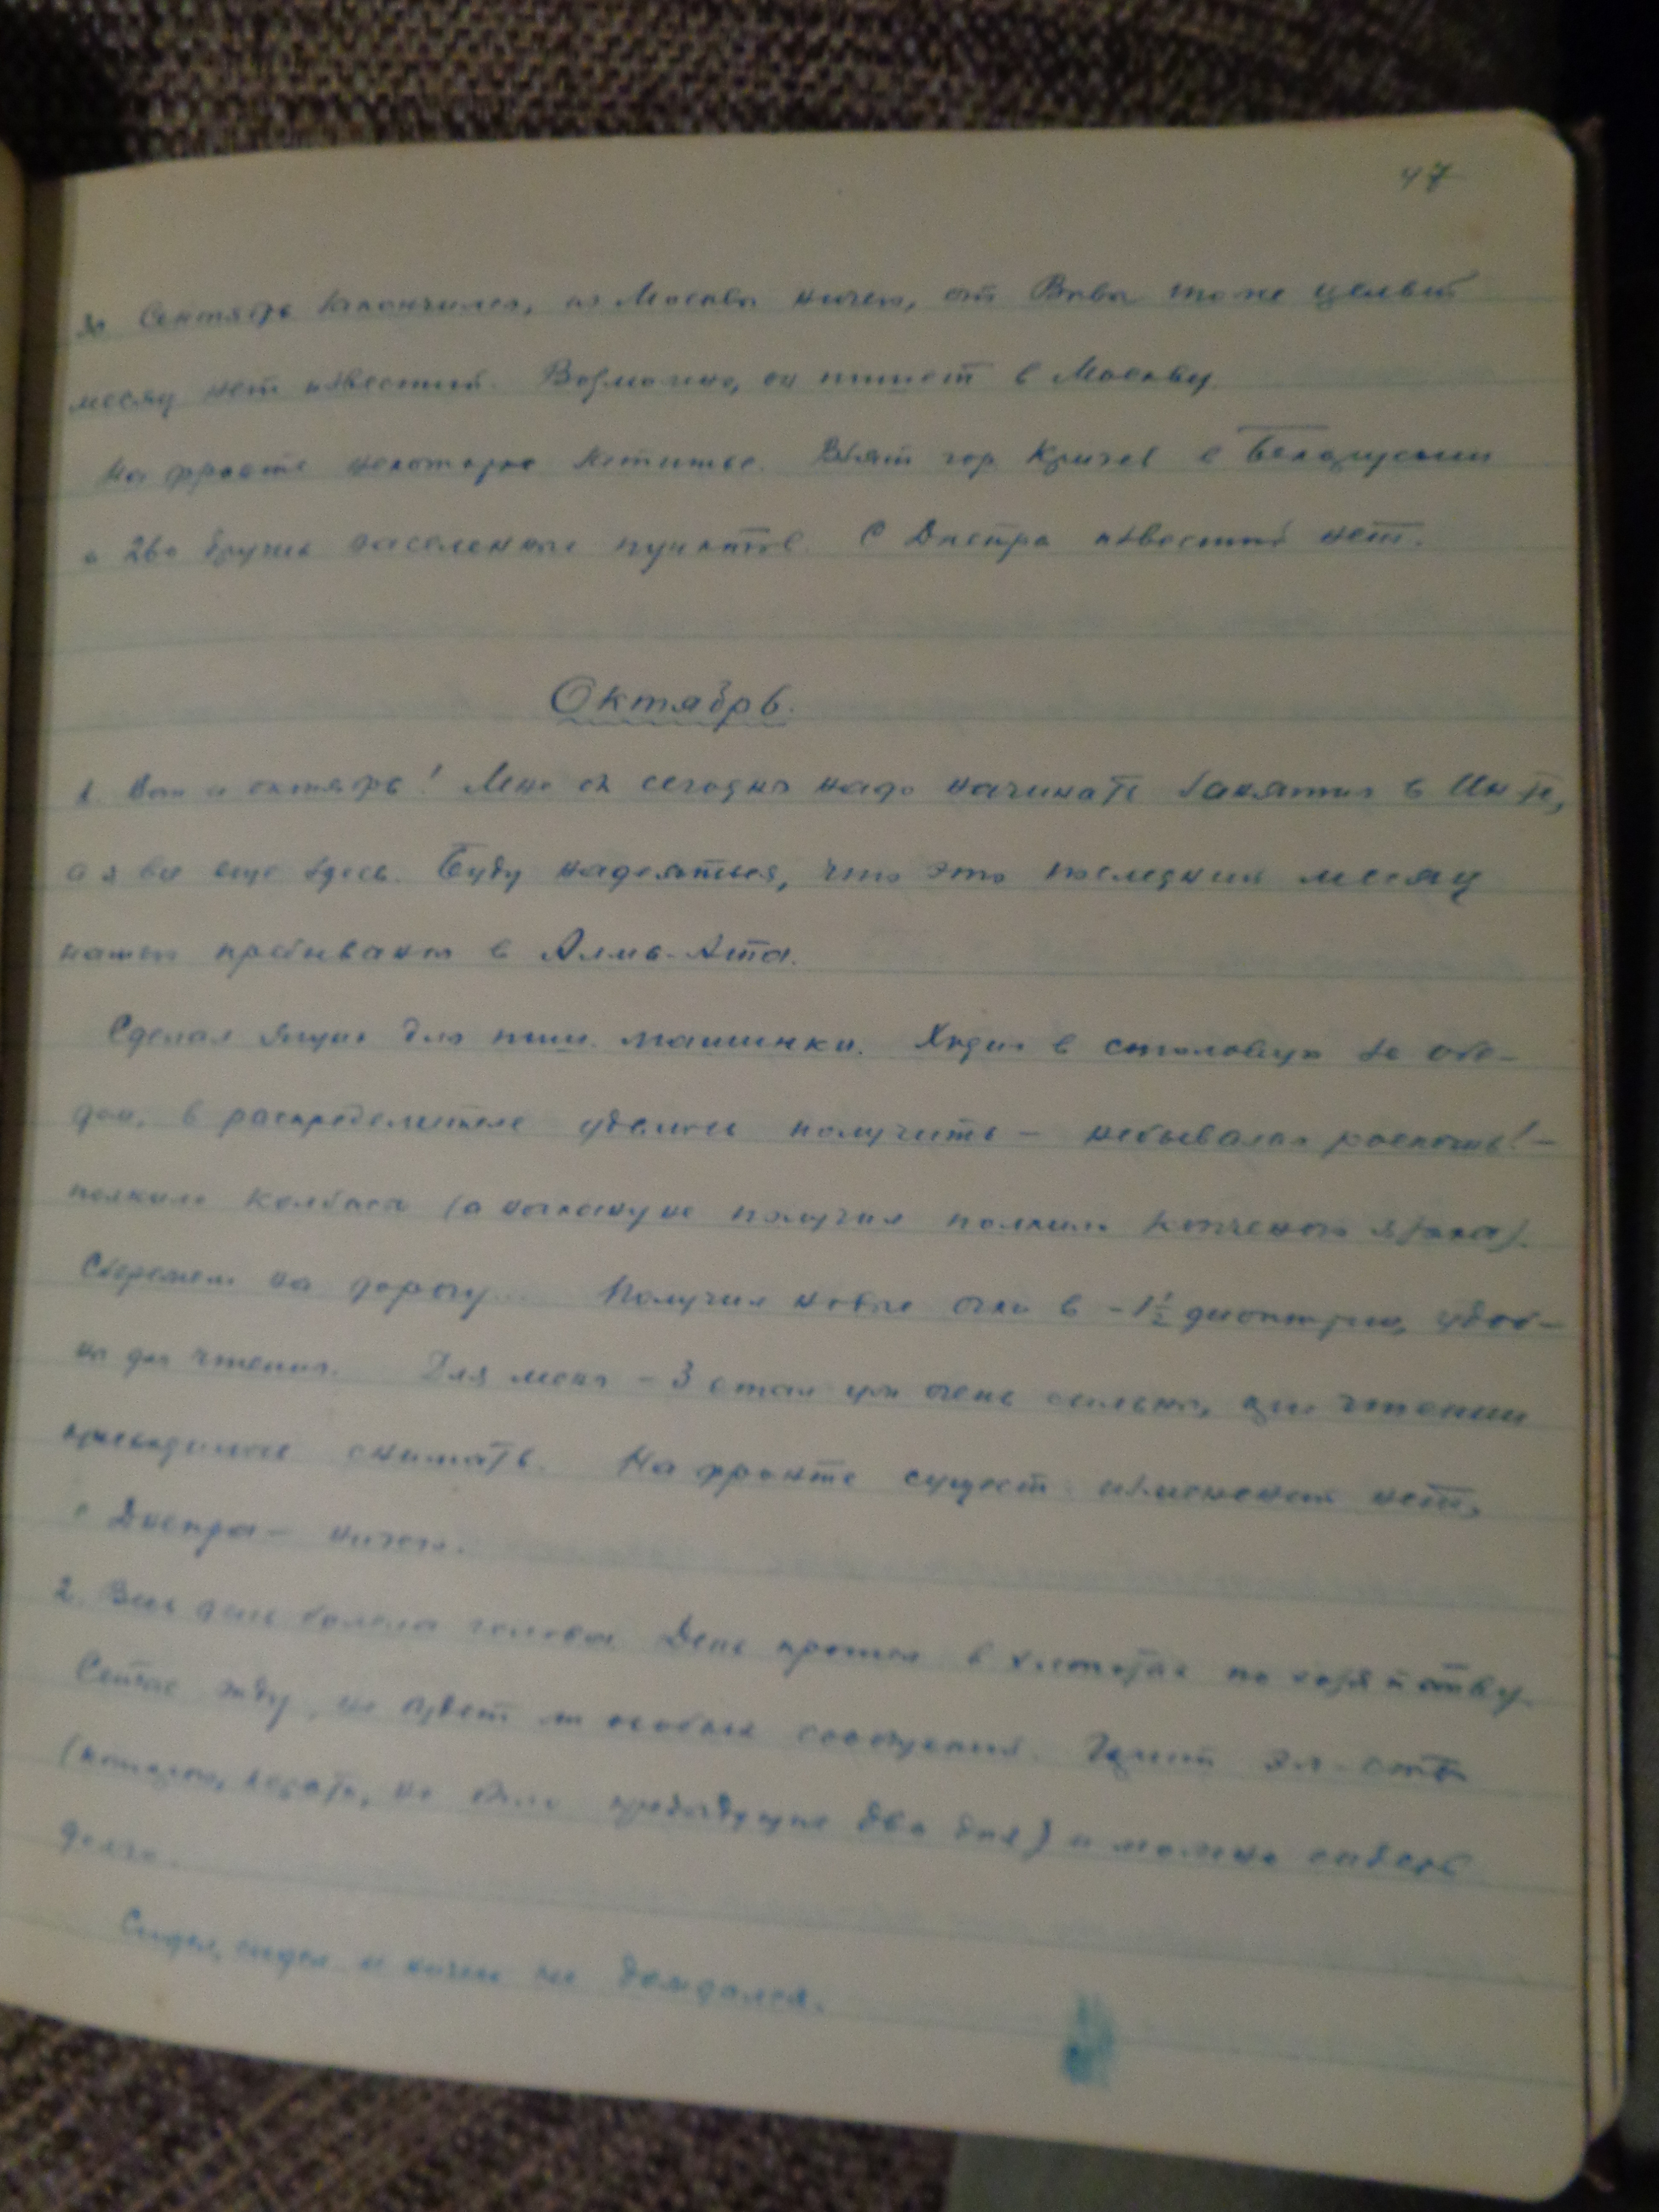 47
30. Сентябрь закончился, из Москвы ничего, от Вовы тоже целый
месяц нет известий. Возможно, он пишет в Москву.
На фронте некоторое затишье. Взят гор. Кричев в Белоруссии
и 260 других населенных пунктов. С Днепра известий нет.
Октябрь.
1. Вот и октябрь! Мне бы сегодня надо начинать занятия в Ин-те,
а я все еще здесь. Буду надеяться, что это последний месяц
нашего пребывания в Алма-Ата.
Сделал ящик для пиш. машинки. Ходил в столовую за обе-
дом, в распределителе удалось получить – небывалая роскошь! –
полкило колбасы (а накануне получил полкило копченого языка).
Сбережем на дорогу. Получил новые очки в -1½ диоптрии, удоб-
но для чтения. Для меня -3 стали уж очень сильны, при чтении
приходилось снимать. На фронте сущест. изменений нет,
с Днепра – ничего.
2. Весь день болела голова. День прошел в хлопотах по хозяйству.
Сейчас жду, не будет ли особых сообщений. Горит эл-ство
(которого, кстати, не было предыдущие два дня) и можно сидеть
долго.
Сидел, сидел и ничего не дождался.